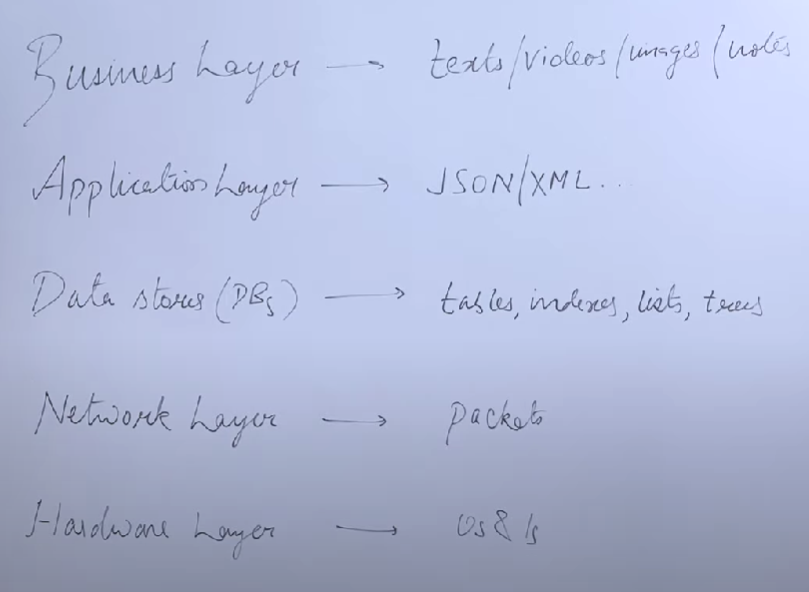 Business Layer → texts/videos/images/notes
Application Layer → JSON/XML...
Data stores (DBs) → tables, indexes, lists, trees
Network Layer → packets
Hardware Layer → 0s & 1s